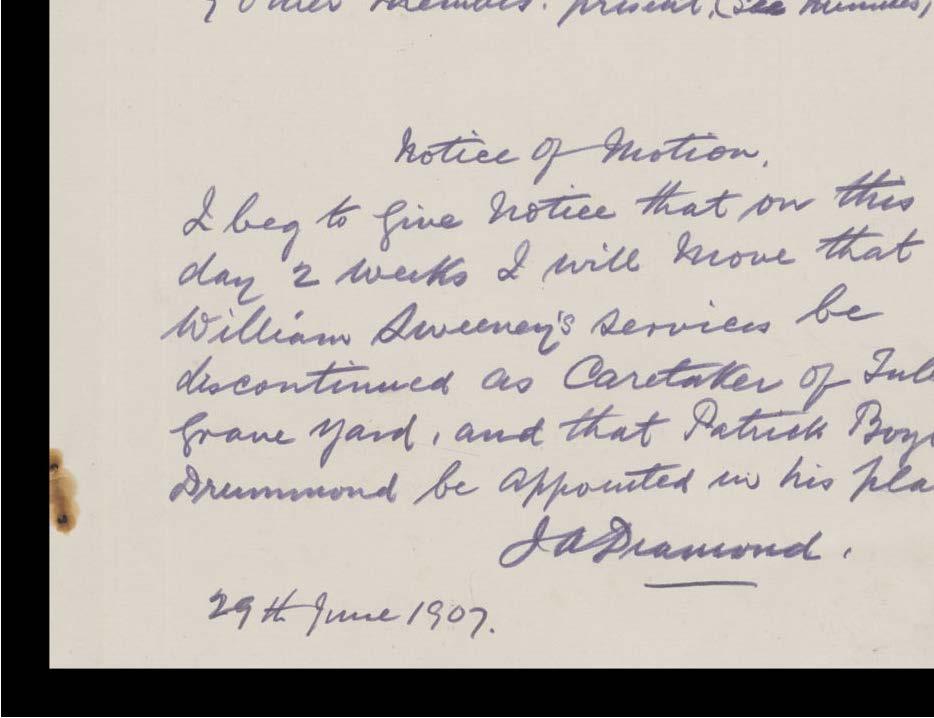 & other members. present, (see Minutes)
Notice of Motion.
I beg to give Notice that on this
day 2 weeks I will Move that
William Sweeney's services be
discontinued as Caretaker of
Grave Yard, and that Patrick
Drummond be appointed in his
J A Diamond.
29th June 1907.